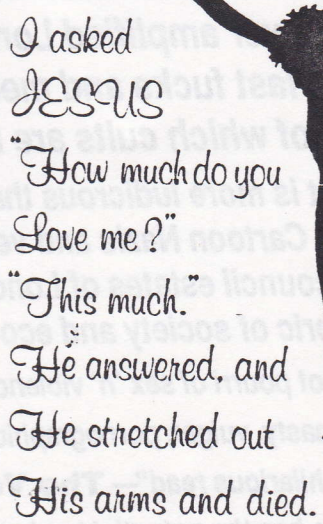 I asked
JESUS
"How much do you
Love me?"
"This much."
He answered, and
He stretched out
His arms and died.